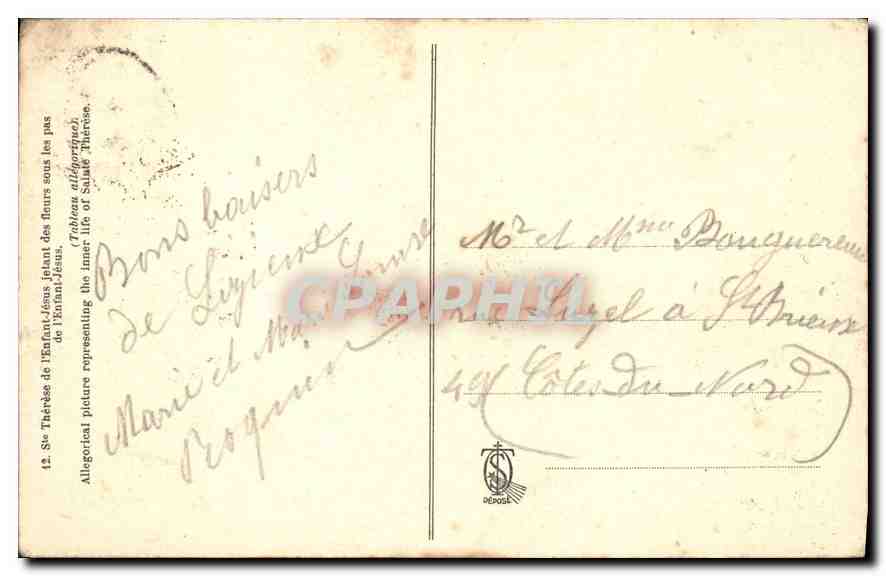 12. Ste Thérèse de l'Enfant-Jésus jetant des fleurs sous les pas
de l'Enfant-Jésus.
(Tableau allégorique).
Allegorical picture representing the inner life of Sainte Thérèse.
Bons baisers
de Lizieux
Marie et Louise
CPAPHIL
Mr et Mme Bouguereau
rue Luzel à St Brieux
Côtes du Nord
DÉPOSÉ